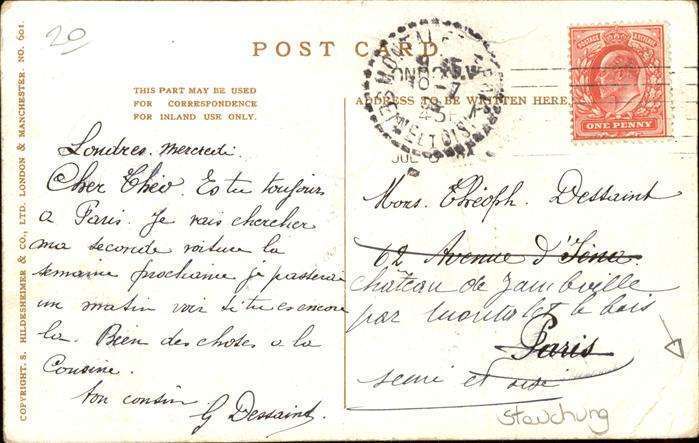 20
POST CARD
THIS PART MAY BE USED
FOR CORRESPONDENCE
FOR INLAND USE ONLY.
ADDRESS TO BE WRITTEN HERE.
COPYRIGHT. S. HILDESHEIMER & CO., LTD. LONDON & MANCHESTER. NO. 601.
ONE PENNY
LONDON.S.W
Londres. Mercredi.
Cher Théo. Es tu toujours
a Paris. Je vais chercher
ma seconde voiture la
semaine prochaine je passerai
un matin voir si tu es encore
la. Bien des choses a la
Cousine.
ton cousin
G Dessaint.
Mons. Théoph. Dessaint
62 Avenue d'Iéna
chateau de
par le bois
Paris
seine et oise
Stauchung